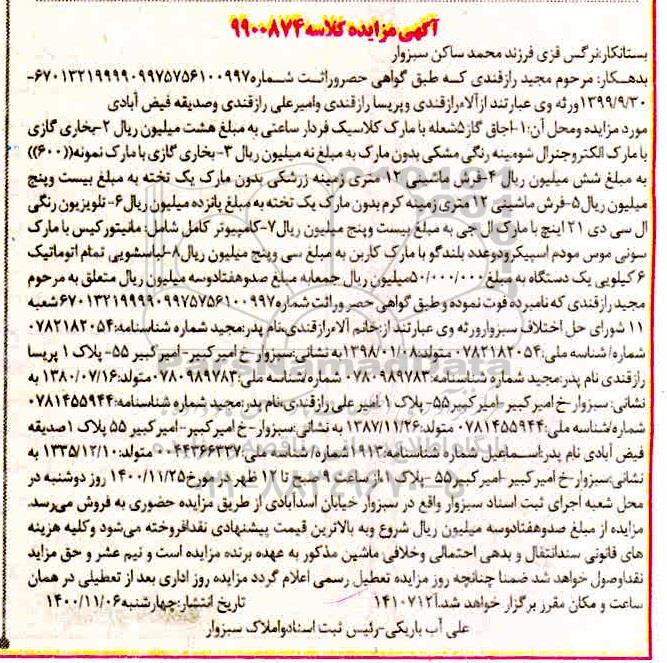 آگهی مزایده کلاسه ۹۹۰۰۸۷۴
بستانکار:نرگس قزی فرزند محمد ساکن سبزوار
بدهکار: مرحوم مجید رازقندی که طبق گواهی حصروراثت شماره۶۷۰۱۳۲۱۹۹۹۹۰۹۹۷۵۷۵۶۱۰۰۹۹۷-
۱۳۹۹/۹/۳۰ورثه وی عبارتند ازآلاءرازقندی وپریسا رازقندی وامیرعلی رازقندی وصدیقه فیض آبادی
مورد مزایده ومحل آن:۱-اجاق گاز۵شعله با مارک کلاسیک فردار ساعتی به مبلغ هشت میلیون ریال ۲-بخاری گازی
با مارک الکتروجنرال شومینه رنگی مشکی بدون مارک به مبلغ نه میلیون ریال ۳- بخاری گازی با مارک نمونه((۶۰۰))
به مبلغ شش میلیون ریال ۴-فرش ماشینی ۱۲ متری زمینه زرشکی بدون مارک یک تخته به مبلغ بیست وپنج
میلیون ریال۵-فرش ماشینی ۱۲ متری زمینه کرم بدون مارک یک تخته به مبلغ پانزده میلیون ریال۶- تلویزیون رنگی
ال سی دی ۲۱ اینچ با مارک ال جی به مبلغ بیست وپنج میلیون ریال۷-کامپیوتر کامل شامل: مانیتورکیس با مارک
سونی موس مودم اسپیکرودوعدد بلندگو با مارک کاربن به مبلغ سی وپنج میلیون ریال۸-لباسشویی تمام اتوماتیک
۶کیلویی یک دستگاه به مبلغ۵۰/۰۰۰/۰۰۰میلیون ریال جمعابه مبلغ صدوهفتادوسه میلیون ریال متعلق به مرحوم
مجید رازقندی که نامبرده فوت نموده و طبق گواهی حصر وراثت شماره۶۷۰۱۳۲۱۹۹۹۹۰۹۹۷۵۷۵۶۱۰۰۹۹۷شعبه
۱۱ شورای حل اختلاف سبزوارورثه وی عبارتند از:خانم آلاءرازقندی،نام پدر:مجید شماره شناسنامه:۰۷۸۲۱۸۲۰۵۴
شماره/شناسه ملی:۰۷۸۲۱۸۲۰۵۴متولد:۱۳۹۸/۰۱/۰۸به نشانی:سبزوار-خ امیرکبیر-امیرکبیر ۵۵- پلاک ۱ پریسا
رازقندی نام پدر:مجید شماره شناسنامه:۰۷۸۰۹۸۹۷۸۳ شماره/شناسه ملی:۰۷۸۰۹۸۹۷۸۳متولد:۱۳۸۰/۰۷/۱۶ به
نشانی: سبزوار-خ امیرکبیر -امیرکبیر ۵۵- پلاک ۱-امیر علی رازقندی،نام پدر:مجید شماره شناسنامه:۰۷۸۱۴۵۵۹۴۴
شماره/شناسه ملی:۰۷۸۱۴۵۵۹۴۴ متولد:۱۳۸۷/۱۱/۲۶ به نشانی:سبزوار-خ امیرکبیر -امیرکبیر ۵۵ پلاک ۱صدیقه
فیض آبادی نام پدر:اسماعیل شماره شناسنامه:۱۹۱۳شماره/ شناسه ملی:۰۰۴۴۳۶۶۳۳۷ متولد:۱۳۳۵/۱۲/۱۰ به
نشانی:سبزوار-خ امیرکبیر -امیرکبیر۵۵ -پلاک ۱،از ساعت ۹ صبح تا ۱۲ ظهر در مورخ۱۴۰۰/۱۱/۲۵ روز دوشنبه در
محل شعبه اجرای ثبت اسناد سبزوار واقع در سبزوار خیابان اسدآبادی از طریق مزایده حضوری به فروش می‌رسد.
مزایده از مبلغ صدوهفتادوسه میلیون ریال شروع وبه بالاترین قیمت پیشنهادی نقدافروخته می‌شود وکلیه هزینه
های قانونی سندانتقال و بدهی احتمالی وخلافی ماشین مذکور به عهده برنده مزایده است و نیم عشر و حق مزاید
نقداوصول خواهد شد ضمنا چنانچه روز مزایده تعطیل رسمی اعلام گردد مزایده روز اداری بعد از تعطیلی در همان
ساعت و مکان مقرر برگزار خواهد شد.آ۱۴۱۰۷۱۲ تاریخ انتشار:چهارشنبه۱۴۰۰/۱۱/۰۶
علی آب باریکی-رئیس ثبت اسنادواملاک سبزوار
ParsNamadData